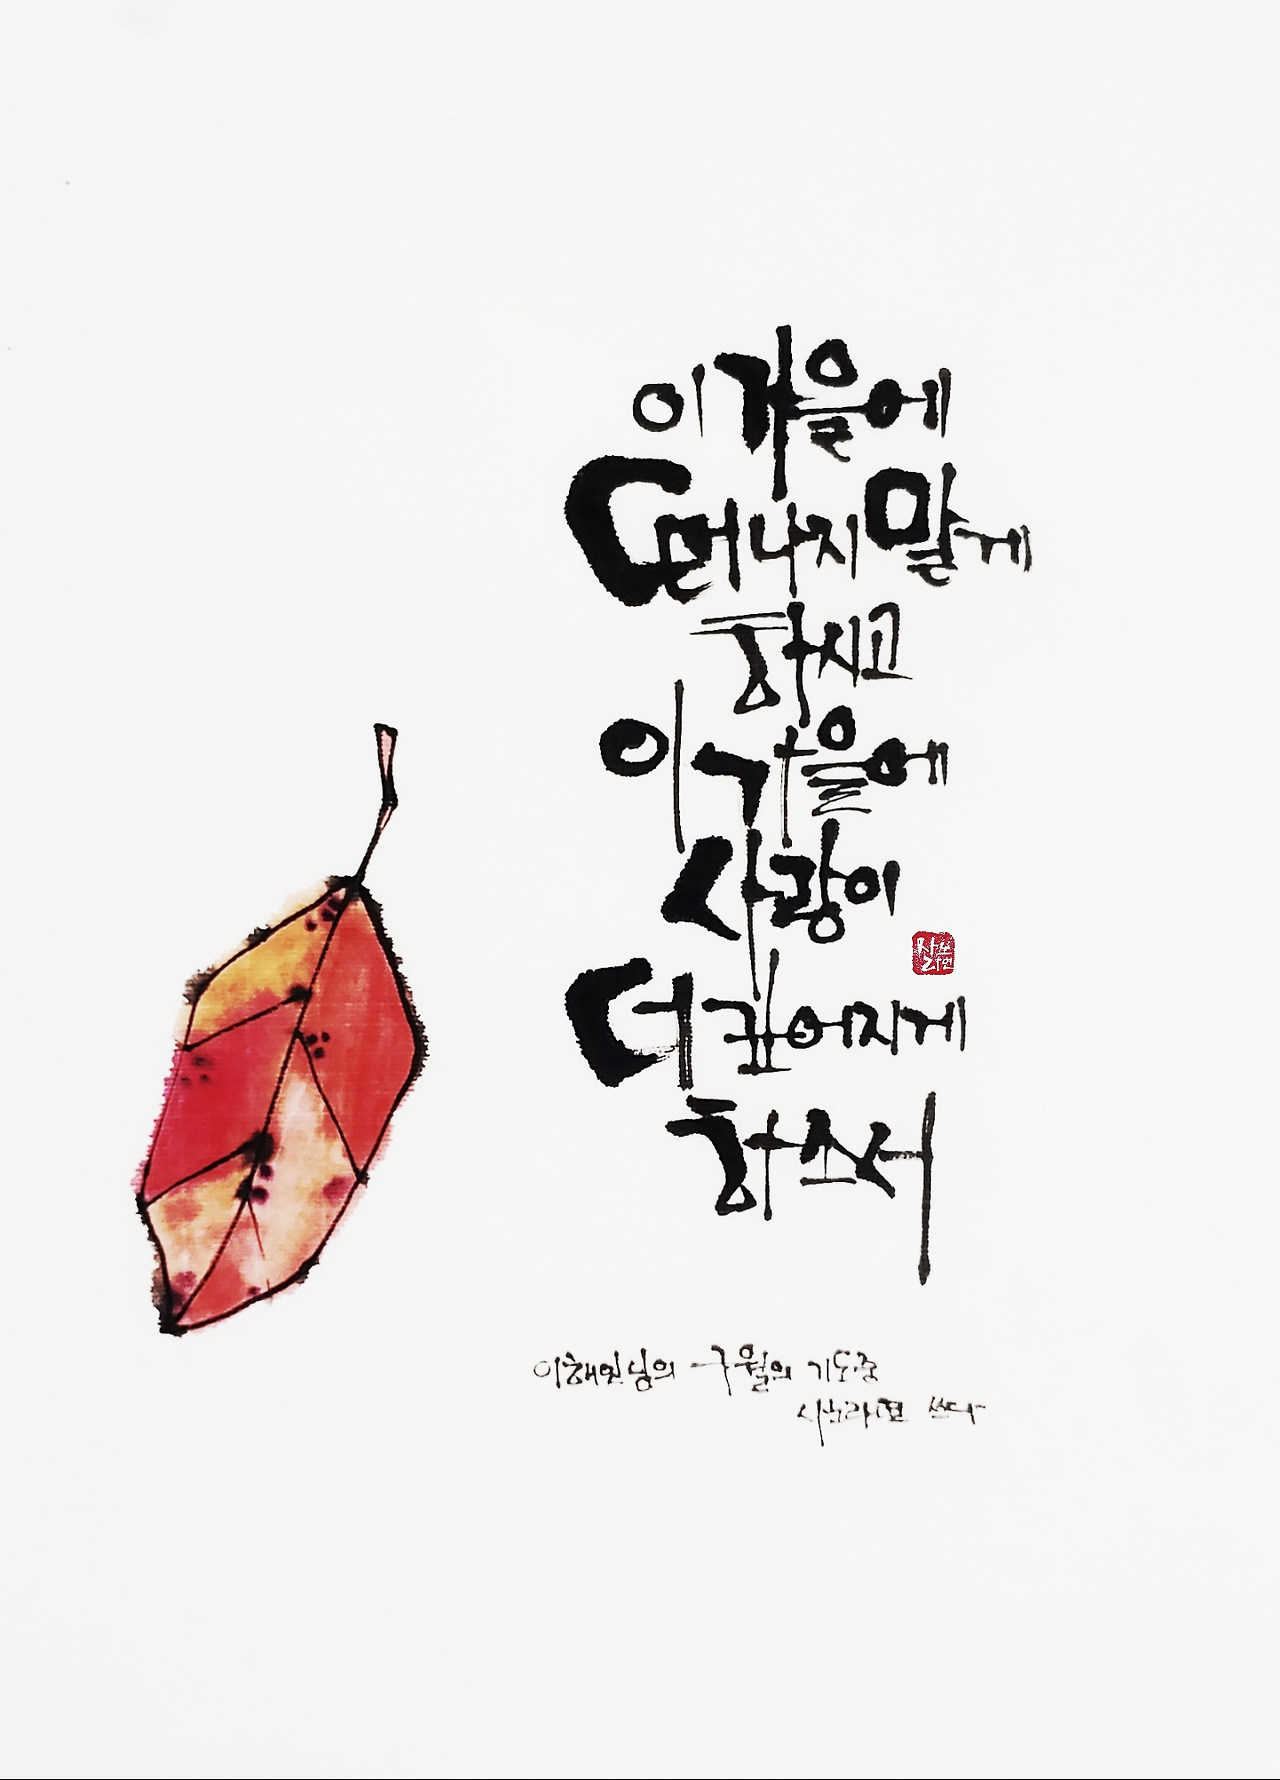 이 가을에
떠나지 말게
하시고
이 가을에
사랑이
더 깊어지게
하소서
이해인님의 구월의 기도중
쓰다